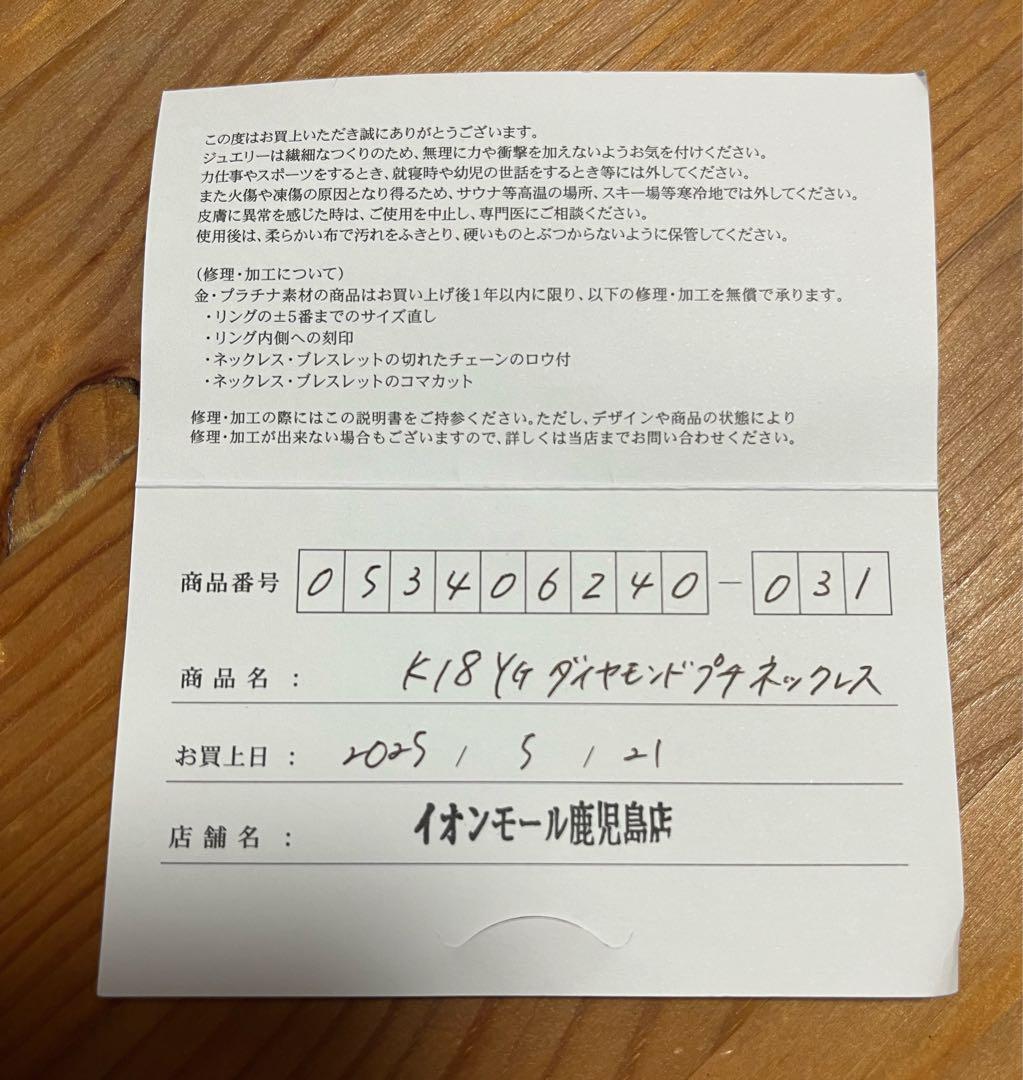 この度はお買上いただき誠にありがとうございます。
ジュエリーは繊細なつくりのため、無理に力や衝撃を加えないようお気を付けください。
力仕事やスポーツをするとき、就寝時や幼児の世話をするとき等には外してください。
また火傷や凍傷の原因となり得るため、サウナ等高温の場所、スキー場等寒冷地では外してください。
皮膚に異常を感じた時は、ご使用を中止し、専門医にご相談ください。
使用後は、柔らかい布で汚れをふきとり、硬いものとぶつからないように保管してください。
（修理・加工について）
金・プラチナ素材の商品はお買い上げ後1年以内に限り、以下の修理・加工を無償で承ります。
・リングの±5番までのサイズ直し
・リング内側への刻印
・ネックレス・ブレスレットの切れたチェーンのロウ付
・ネックレス・ブレスレットのコマカット
修理・加工の際にはこの説明書をご持参ください。ただし、デザインや商品の状態により
修理・加工が出来ない場合もございますので、詳しくは当店までお問い合わせください。
商品番号 053406240－031
商品名： K18YGダイヤモンドプチネックレス
お買上日： 2025 / 5 / 21
店舗名： イオンモール鹿児島店